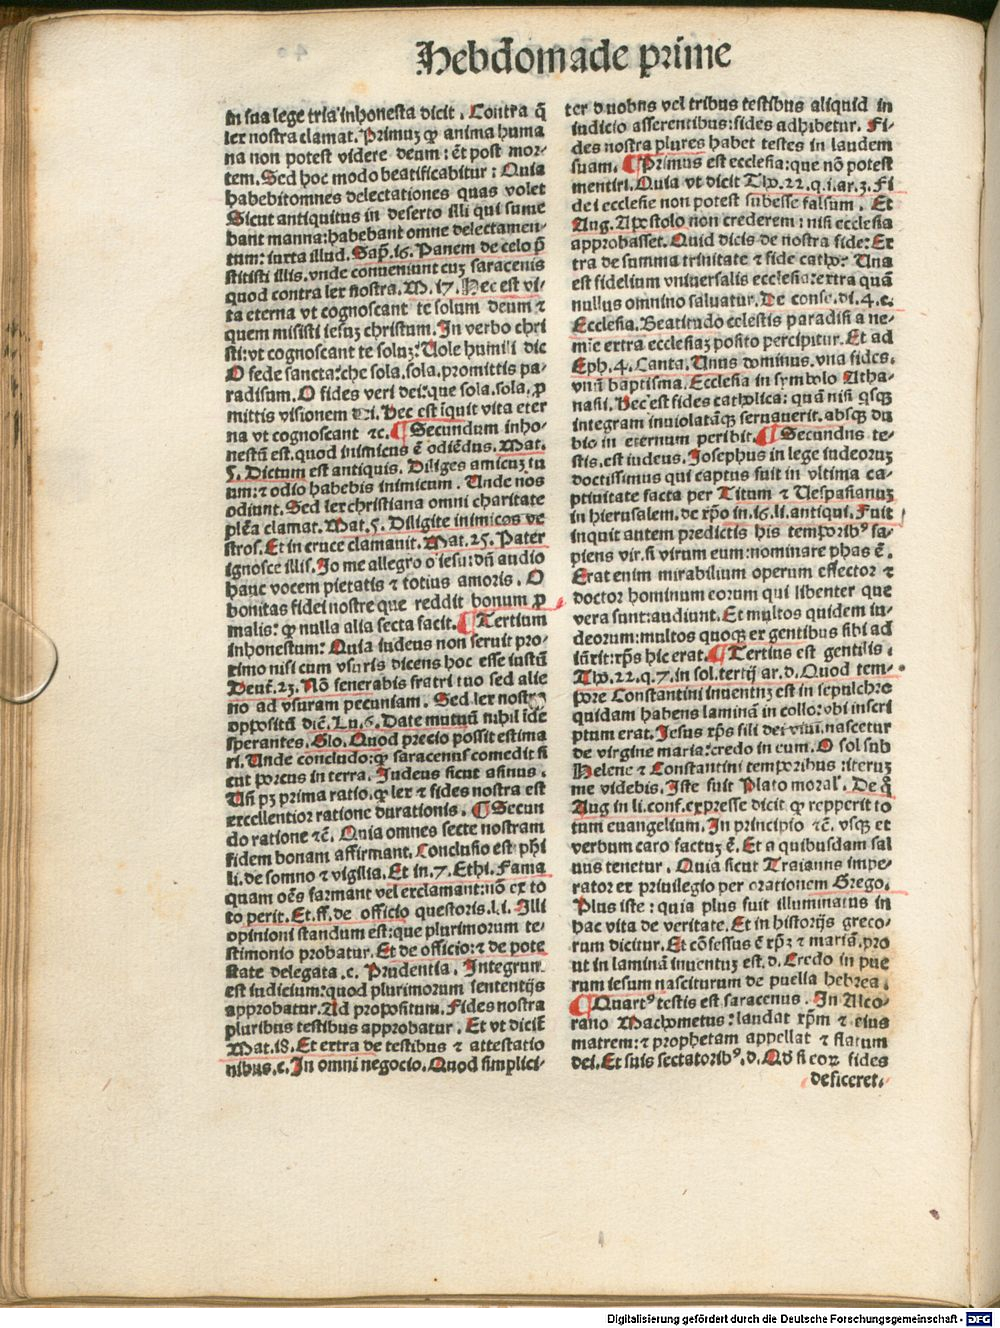 Hebdomade prime
in sua lege tria inhonesta dicit. Contra q̄
lex nostra clamat. Primuꝫ ꝙ anima huma
na non potest videre deum: et̄ post mor-
tem. Sed hoc modo beatificabitur: Quia
habebitomnes delectationes quas volet
Sicut antiquitus in deserto illi qui sume
bant manna: habebant omne delectamen-
tum: iuxta illud. Sap̄. 16. Panem de celo p̄
stitisti illis. vnde conueniunt cuꝫ saracenis
quod contra lex nostra. M. 17. Hec est vi-
ta eterna vt cognoscant te solum deum ⁊
quem misisti iesuꝫ christum. In verbo chri
sti: vt cognoscant te soluꝫ: Uole humili dic
O fede sancta: che sola. sola. promittis pa-
radisum. O fides veri dei: que sola. sola. p̄
mittis visionem Di. Hec est in̄quit vita eter
na vt cognoscant ⁊c. ¶ Secundum inho-
nestū est. quod inimicus ē odiēdus. Mat.
5. Dictum est antiquis. Diliges amicuꝫ tu
um: ⁊ odio habebis inimicum. Unde nos
odiunt. Sed lex christiana omni charitate
plēa clamat. Mat. 5. Diligite inimicos ve
stros. Et in cruce clamauit. Mat. 25. Pater
ignosce illis. Jo me allegro o iesu: dn̄ audio
hanc vocem pietatis ⁊ totius amoris. O
bonitas fidei nostre que reddit bonum ꝓ
malis: ꝙ nulla alia secta facit. ¶ Tertium
inhonestum: Quia iudeus non seruit pro-
ximo nisi cum vsuris dicens hoc esse iustū
Deut̄. 23. Nō fenerabis fratri tuo sed alie
no ad vsuram pecuniam. Sed lex nostra
oppositū dic̄. Lu. 6. Date mutuū nihil īde
sperantes. Glo. Quod precio possit estima
ri. Unde concludo: ꝙ saracenus comedit si
cut porcus in terra. Judeus sicut asinus.
Un̄ pꝫ prima ratio. ꝙ lex ⁊ fides nostra est
excellentior ratione durationis. ¶ Secun
do ratione ⁊c̄. Quia omnes secte nostram
fidem bonam affirmant. Conclusio est phi
li. de somno ⁊ vigilia. Et in. 7. Ethi. Fama
quam oēs farmant vel exclamant: nō ex to
to perit. Et. ff. de officio questoris. l. i. Illi
opinioni standum est: que plurimorum te-
stimonio probatur. Et de officio: ⁊ de pote
state delegata. c. Prudentia. Integrum
est iudicium: quod plurimorum sententijs
approbatur. Ad propositum. Fides nostra
pluribus testibus approbatur. Et vt dicit̄
Mat. 18. Et extra de testibus ⁊ attestatio
nibus. c. In omni negocio. Quod simplici-
ter duobus vel tribus testibus aliquid in
iudicio asserentibus: fides adhibetur. Fi-
des nostra plures habet testes in laudem
suam. ¶ Primus est ecclesia: que nō potest
mentiri. Quia vt dicit Tho. 22. q. i. ar. 3. Fi
dei ecclesie non potest subesse falsum. Et
Aug. Apostolo non crederem: nisi ecclesia
approbasset. Quid dicis de nostra fide: Ex
tra de summa trinitate ⁊ fide catho: Una
est fidelium vniuersalis ecclesia: extra quā
nullus omnino saluatur. De conse. di. 4. c.
Ecclesia. Beatitudo celestis paradisi a ne-
mīe extra ecclesiaꝫ posito percipitur. Et ad
Eph. 4. Canta. Unus dominus. vna fides.
vnū baptisma. Ecclesia in symbolo Atha-
nasii. Hec est fides catholica: quā nisi qsqꝫ
integram inuiolatāqꝫ seruauerit. absqꝫ du
bio in eternum peribit. ¶ Secundus te-
stis. est iudeus. Josephus in lege iudeoruꝫ
doctissimus qui captus fuit in vltima ca-
ptiuitate facta per Titum ⁊ Uespasianuꝫ
in hierusalem. de xp̄o in. 16. li. antiqui. Fuit
inquit autem predictis his temporib⁹ sa-
piens vir. si virum eum: nominare phas ē.
Erat enim mirabilium operum effector ⁊
doctor hominum eorum qui libenter que
vera sunt: audiunt. Et multos quidem iu-
deorum: multos quoqꝫ ex gentibus sibi ad
iūxit: xp̄s hic erat. ¶ Tertius est gentilis.
Tho. 22. q. 7. in sol. tertij ar. d. Quod tem-
pore Constantini inuentuꝫ est in sepulchro
quidam habens laminā in collo: vbi inscri
ptum erat. Jesus xp̄s fili dei viui. nascetur
de virgine maria: credo in eum. O sol sub
Helene ⁊ Constantini temporibus: iteruꝫ
me videbis. Iste fuit Plato moral̄. De q̄
Aug in li. conf. expresse dicit ꝙ repperit to
tum euangelium. In principio ⁊c̄. vsqꝫ et
verbum caro factuꝫ ē. Et a quibusdam sal
uus tenetur. Quia sicut Traianus impe-
rator ex priuilegio per orationem Grego.
Plus iste: quia plus fuit illuminatus in
hac vita de veritate. Et in historijs greco-
rum dicitur. Et cōfessus ē xp̄ꝫ ⁊ mariā. pro
ut in laminā inuentuꝫ est. d. Credo in pue
rum iesum nasciturum de puella hebrea.
¶ Quart⁹ testis est saracenus. In Alco-
rano Machometus: laudat xp̄m ⁊ eius
matrem: ⁊ prophetam appellat ⁊ flatum
dei. Et suis sectatorib⁹. d. Qd̄ si eoꝝ fides
deficeret.
Digitalisierung gefördert durch die Deutsche Forschungsgemeinschaft - DFG